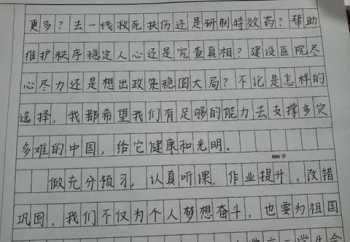 更多？去一线救死扶伤还是研制特效药？帮助
维护秩序稳定人心还是究查真相？建设医院尽
心尽力还是想出政策稳固大局？不论是怎样的
选择，我都希望我们有足够的能力去支撑多灾
多难的中国，给它健康和光明。
做充分预习，认真听课，作业提升，改错
巩固，我们不仅为个人梦想奋斗，也要为祖国